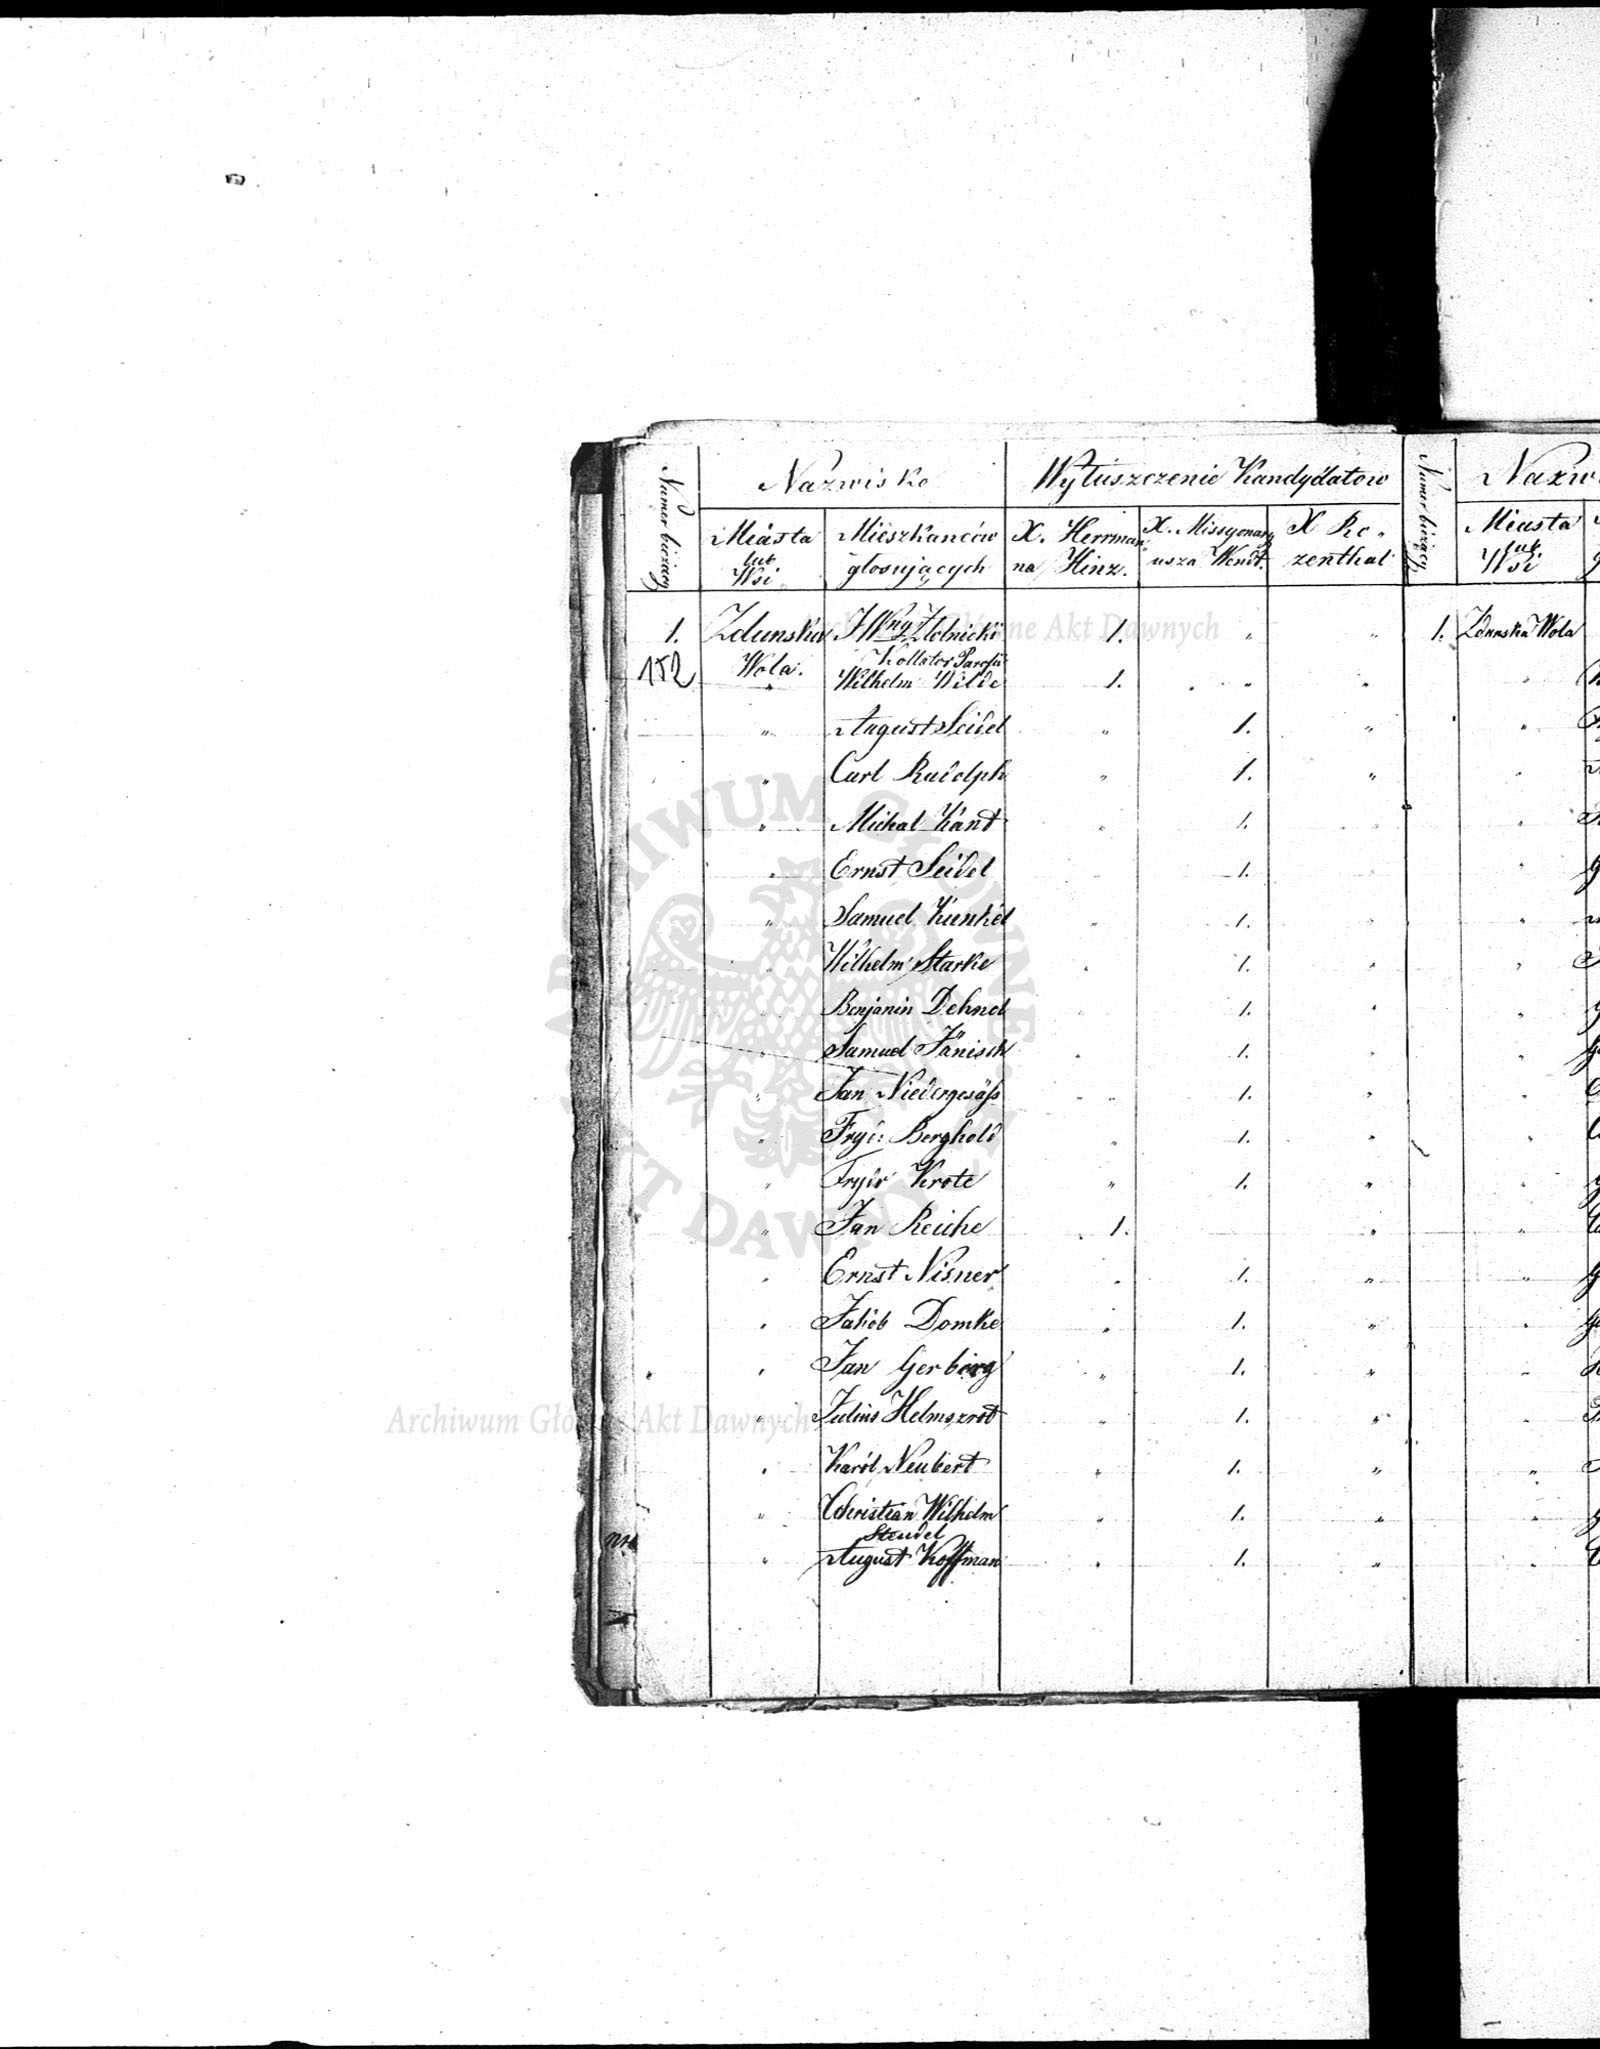 Numer bieżący
Nazwisko
Wyłuszczenie Kandydatow
Miasta lub Wsi
Mieszkanców głosujących
X. Herrmana Hinz.
X. Missyonarzusza Wendt.
X Rozenthal
1. Zdunska Wola. Złotnicki 1. " "
Kollator Parafii
152
" Wilhelm Wilde 1. " "
" August Seidel " 1. "
" Carl Rudolph " 1. "
" Michal Kant " 1. "
" Ernst Seidel 1.
" Samuel Kunkel " 1. "
" Wilhelm Starke " 1. "
" Benjamin Dehnel " 1. "
" Samuel Jänisch " 1. "
" Jan Niedergesäss " 1. "
" Fryd: Berghold " 1. "
" Frydr Krote " 1. "
" Jan Reiche 1. "
" Ernst Nisner " 1. "
" Jakób Domke " 1. "
" Jan Gerbing " 1. "
" Julius Helmszrot " 1. "
" Karól Neubert " 1. "
" Christian Wilhelm " 1. "
Steudel
" August Koffman " 1. "
Numer bieżący
Nazw
Miasta lub Wsi
1. Zdunska Wola
Archiwum Główne Akt Dawnych
ARCHIWUM GŁÓWNE AKT DAWNYCH
Archiwum Główne Akt Dawnych